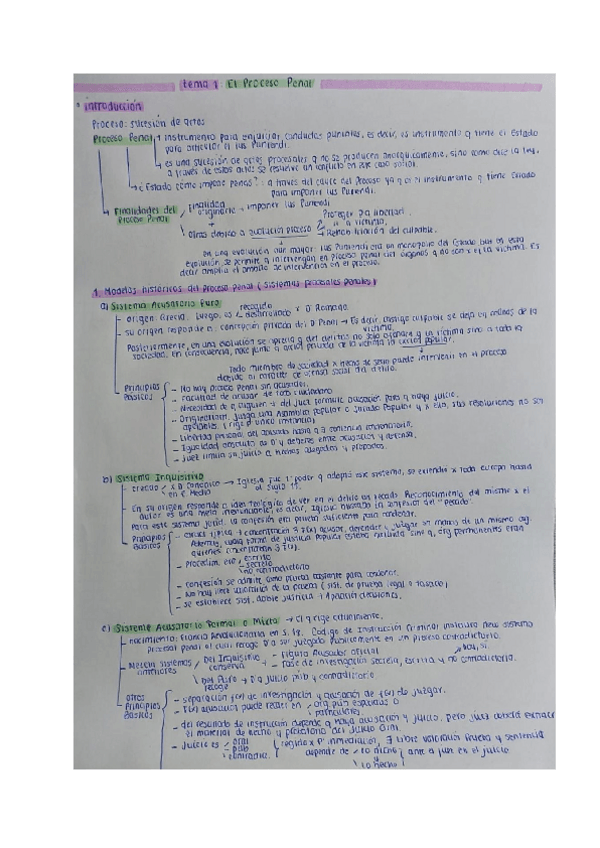 tema 1: El Proceso Penal
Introducción
Proceso: sucesión de actos
Proceso Penal → Instrumento para enjuiciar conductas punibles, es decir, es instrumento q tiene el Estado
para articular el Ius Puniendi.
→ es una sucesión de actos procesales q no se producen anárquicamente, sino como dice la ley,
a través de estos actos se resuelve un conflicto en este caso social.
→ ¿Estado cómo impone penas?: a través del cauce del Proceso ya q es el instrumento q tiene Estado
para imponer Ius Puniendi.
→ Finalidades del Proceso Penal
Finalidad originaria → imponer Ius Puniendi
Otras debido a evolución proceso
Proteger la libertad
" a la víctima.
Rehabilitación del culpable.
en una evolución aún mayor: Ius Puniendi era un monopolio del Estado pero en esta
evolución se permite q intervengan en Proceso penal otr órganos q no son x ej la víctima. Es
decir amplía el ámbito de intervención en el proceso.
1. Modelos históricos del proceso penal (sistemas procesales penales)
a) Sistema Acusatorio Puro
- origen: Grecia. Luego, es recogido y desarrollado x D Romano.
- su origen responde a: concepción privada del D Penal → Es decir, castigo culpable se deja en manos de la
víctima.
Posteriormente, en una evolución se aprecia q del delito no solo ofende a la víctima sino a toda la
sociedad, en consecuencia, nace junto a acción privada de la víctima la acción popular.
Todo miembro de sociedad x hecho de serlo puede intervenir en el proceso
debido al carácter de ofensa social del delito.
Principios Básicos
- No hay proceso Penal sin acusador.
- Facultad de acusar de todo ciudadano
- Necesidad de q alguien ≠ del juez formule acusación para q haya juicio.
- Originariam. juzga una Asamblea popular o Jurado Popular y x ello, sus resoluciones no son
apelables. (rige pº única instancia)
- Libertad personal del acusado hasta q ∃ sentencia condenatoria.
- Igualdad absoluta de D y deberes entre acusación y defensa.
- Juez limita su juicio a hechos alegados y probados.
b) Sistema Inquisitivo
- creado x D Canónico en E. Media → Iglesia fue 1º poder q adoptó este sistema, se extendió x toda Europa hasta
el siglo
- En su origen responde a idea teológica de ver en el delito un pecado. Reconocimiento del mismo x el
autor es una meta irrenunciable, es decir,
Para este sistema juríd. la confesión era prueba suficiente para condenar.
Principios Básicos
- caract. típica → concentración 3 f(x) acusar, defender y juzgar en manos de un mismo org.
Además, cualq forma de justicia Popular estaba excluida sino q, org permanentes eran
quienes concentraban 3 f(x).
- Procedim. era:
escrito
secreto
no contradictorio
- confesión se admite como prueba bastante para condenar.
- No hay libre valoración de la prueba (sist. de prueba legal o tasada)
- se establece sist. doble justicia → Apelación decisiones.
c) Sistema Acusatorio Formal o Mixto → El q rige actualmente.
- nacimiento: Francia Revolucionaria en S. 18. Código de Instrucción Criminal instauró new sistema
procesal penal el cual recoge D a ser juzgado públicamente en un proceso contradictorio.
- Mezcla sistemas anteriores
Del Inquisitivo conserva
- Figura Acusador oficial
- Fase de investigación secreta, escrita y no contradictoria.
Del Puro recoge → D a juicio púb y contradictorio
Otros Principios Básicos
- separación f(x) de investigación y acusación de f(x) de juzgar.
- F(x) acusatoria puede recaer en
org. púb específicos o
particulares.
- del resultado de instrucción depende q haya acusación y juicio, pero juez deberá extraer
el material de hecho y probatorio del Juicio Oral.
- Juicio es
oral
púb
contradic.
regido x Pº inmediación, ∃ libre valoración prueba y sentencia
depende de
lo dicho
y
lo hecho
ante a juez en el juicio